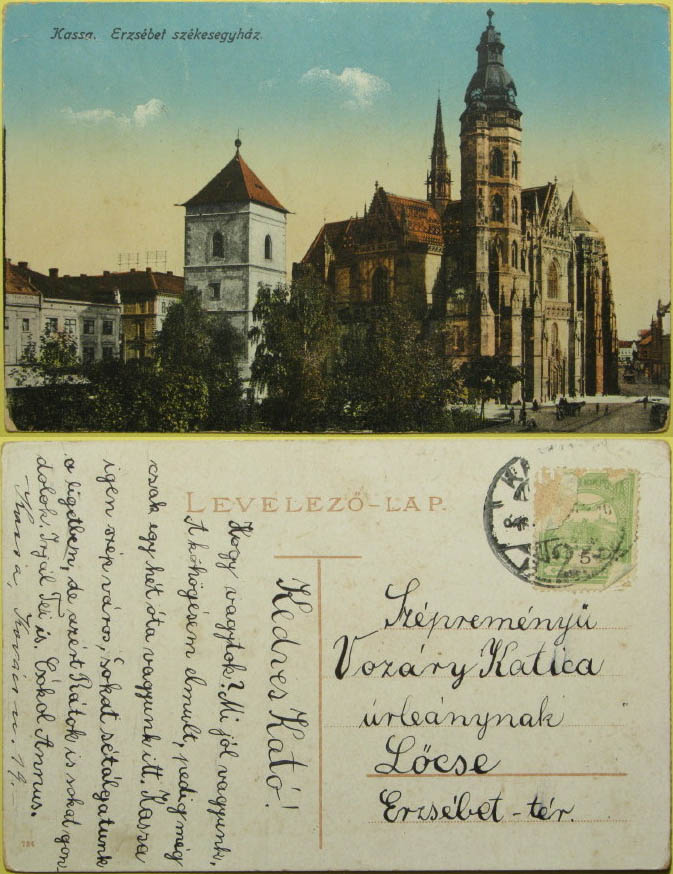 Kassa. Erzsébet székesegyház.
LEVELEZŐ-LAP.
Kedves Kató!
Hogy vagytok? Mi jól vagyunk,
A köhögésem elmult, pedig még
csak egy hét óta vagyunk itt. Kassa
igen szép város, sokat sétálgatunk
a ligetben, de azért Rátok is sokat gon-
dolok. Irjál Te is. Csókol Annus.
Kassa, 19.
Szépreményü
Vozáry Katica
úrleánynak
Lőcse
Erzsébet-tér.
5